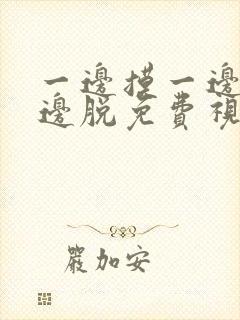 一邊摸一邊
邊脫免費視
嚴加安